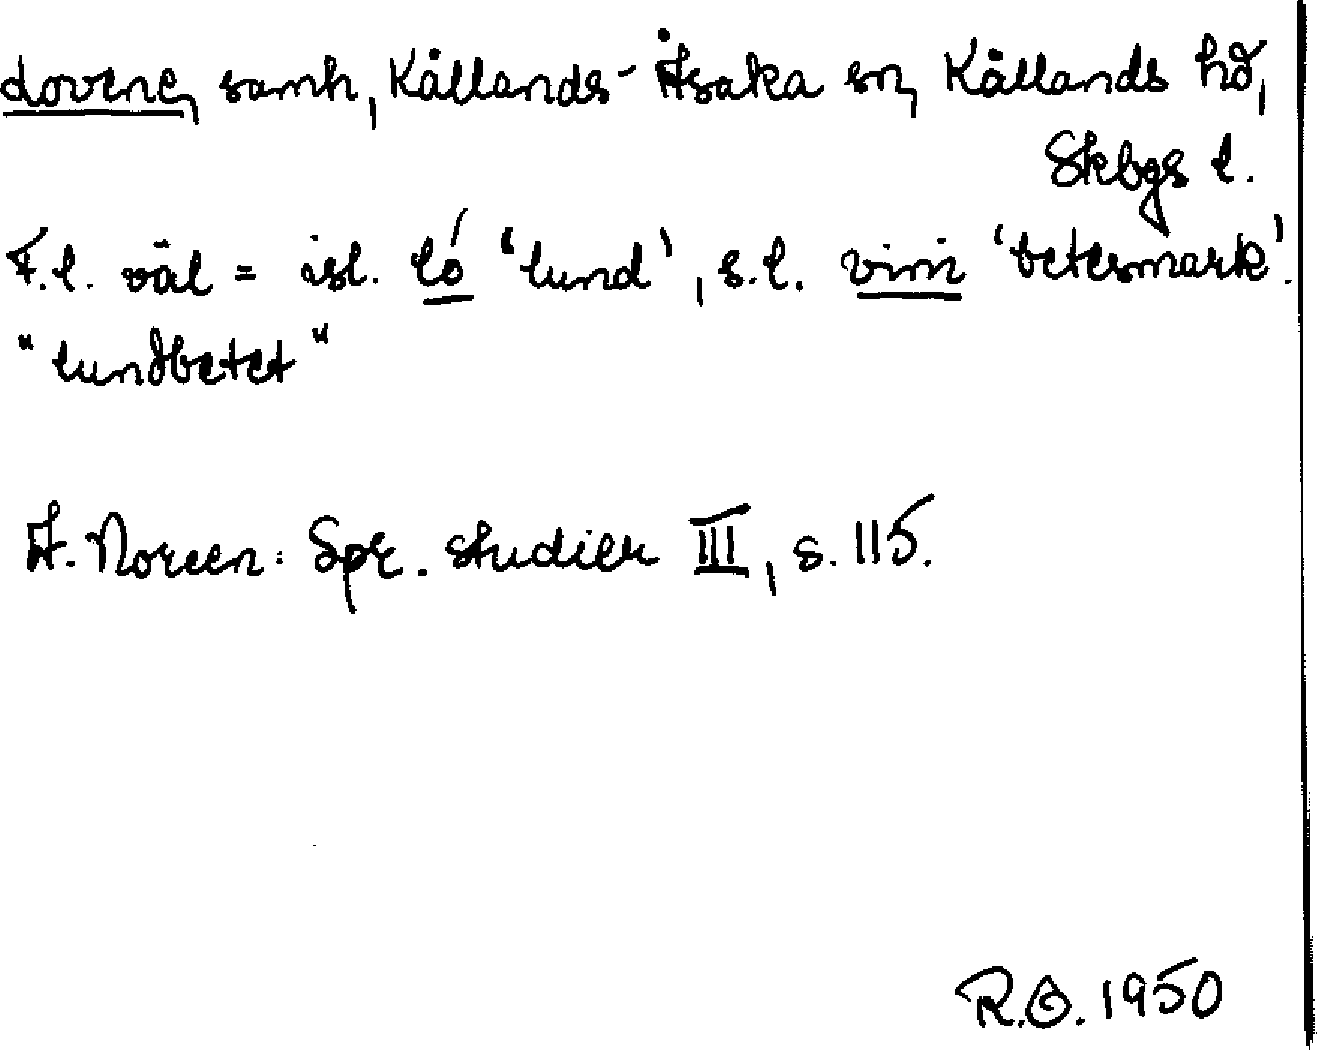 Lovene, samh, Kållands-Åsaka sn, Kållands hd,
Skbgs l.
F.l. väl = isl. ló 'lund', s.l. vini 'betesmark'.
"lundbetet"
A. Noreen: Spr. studier III, s. 115.
R.O. 1950